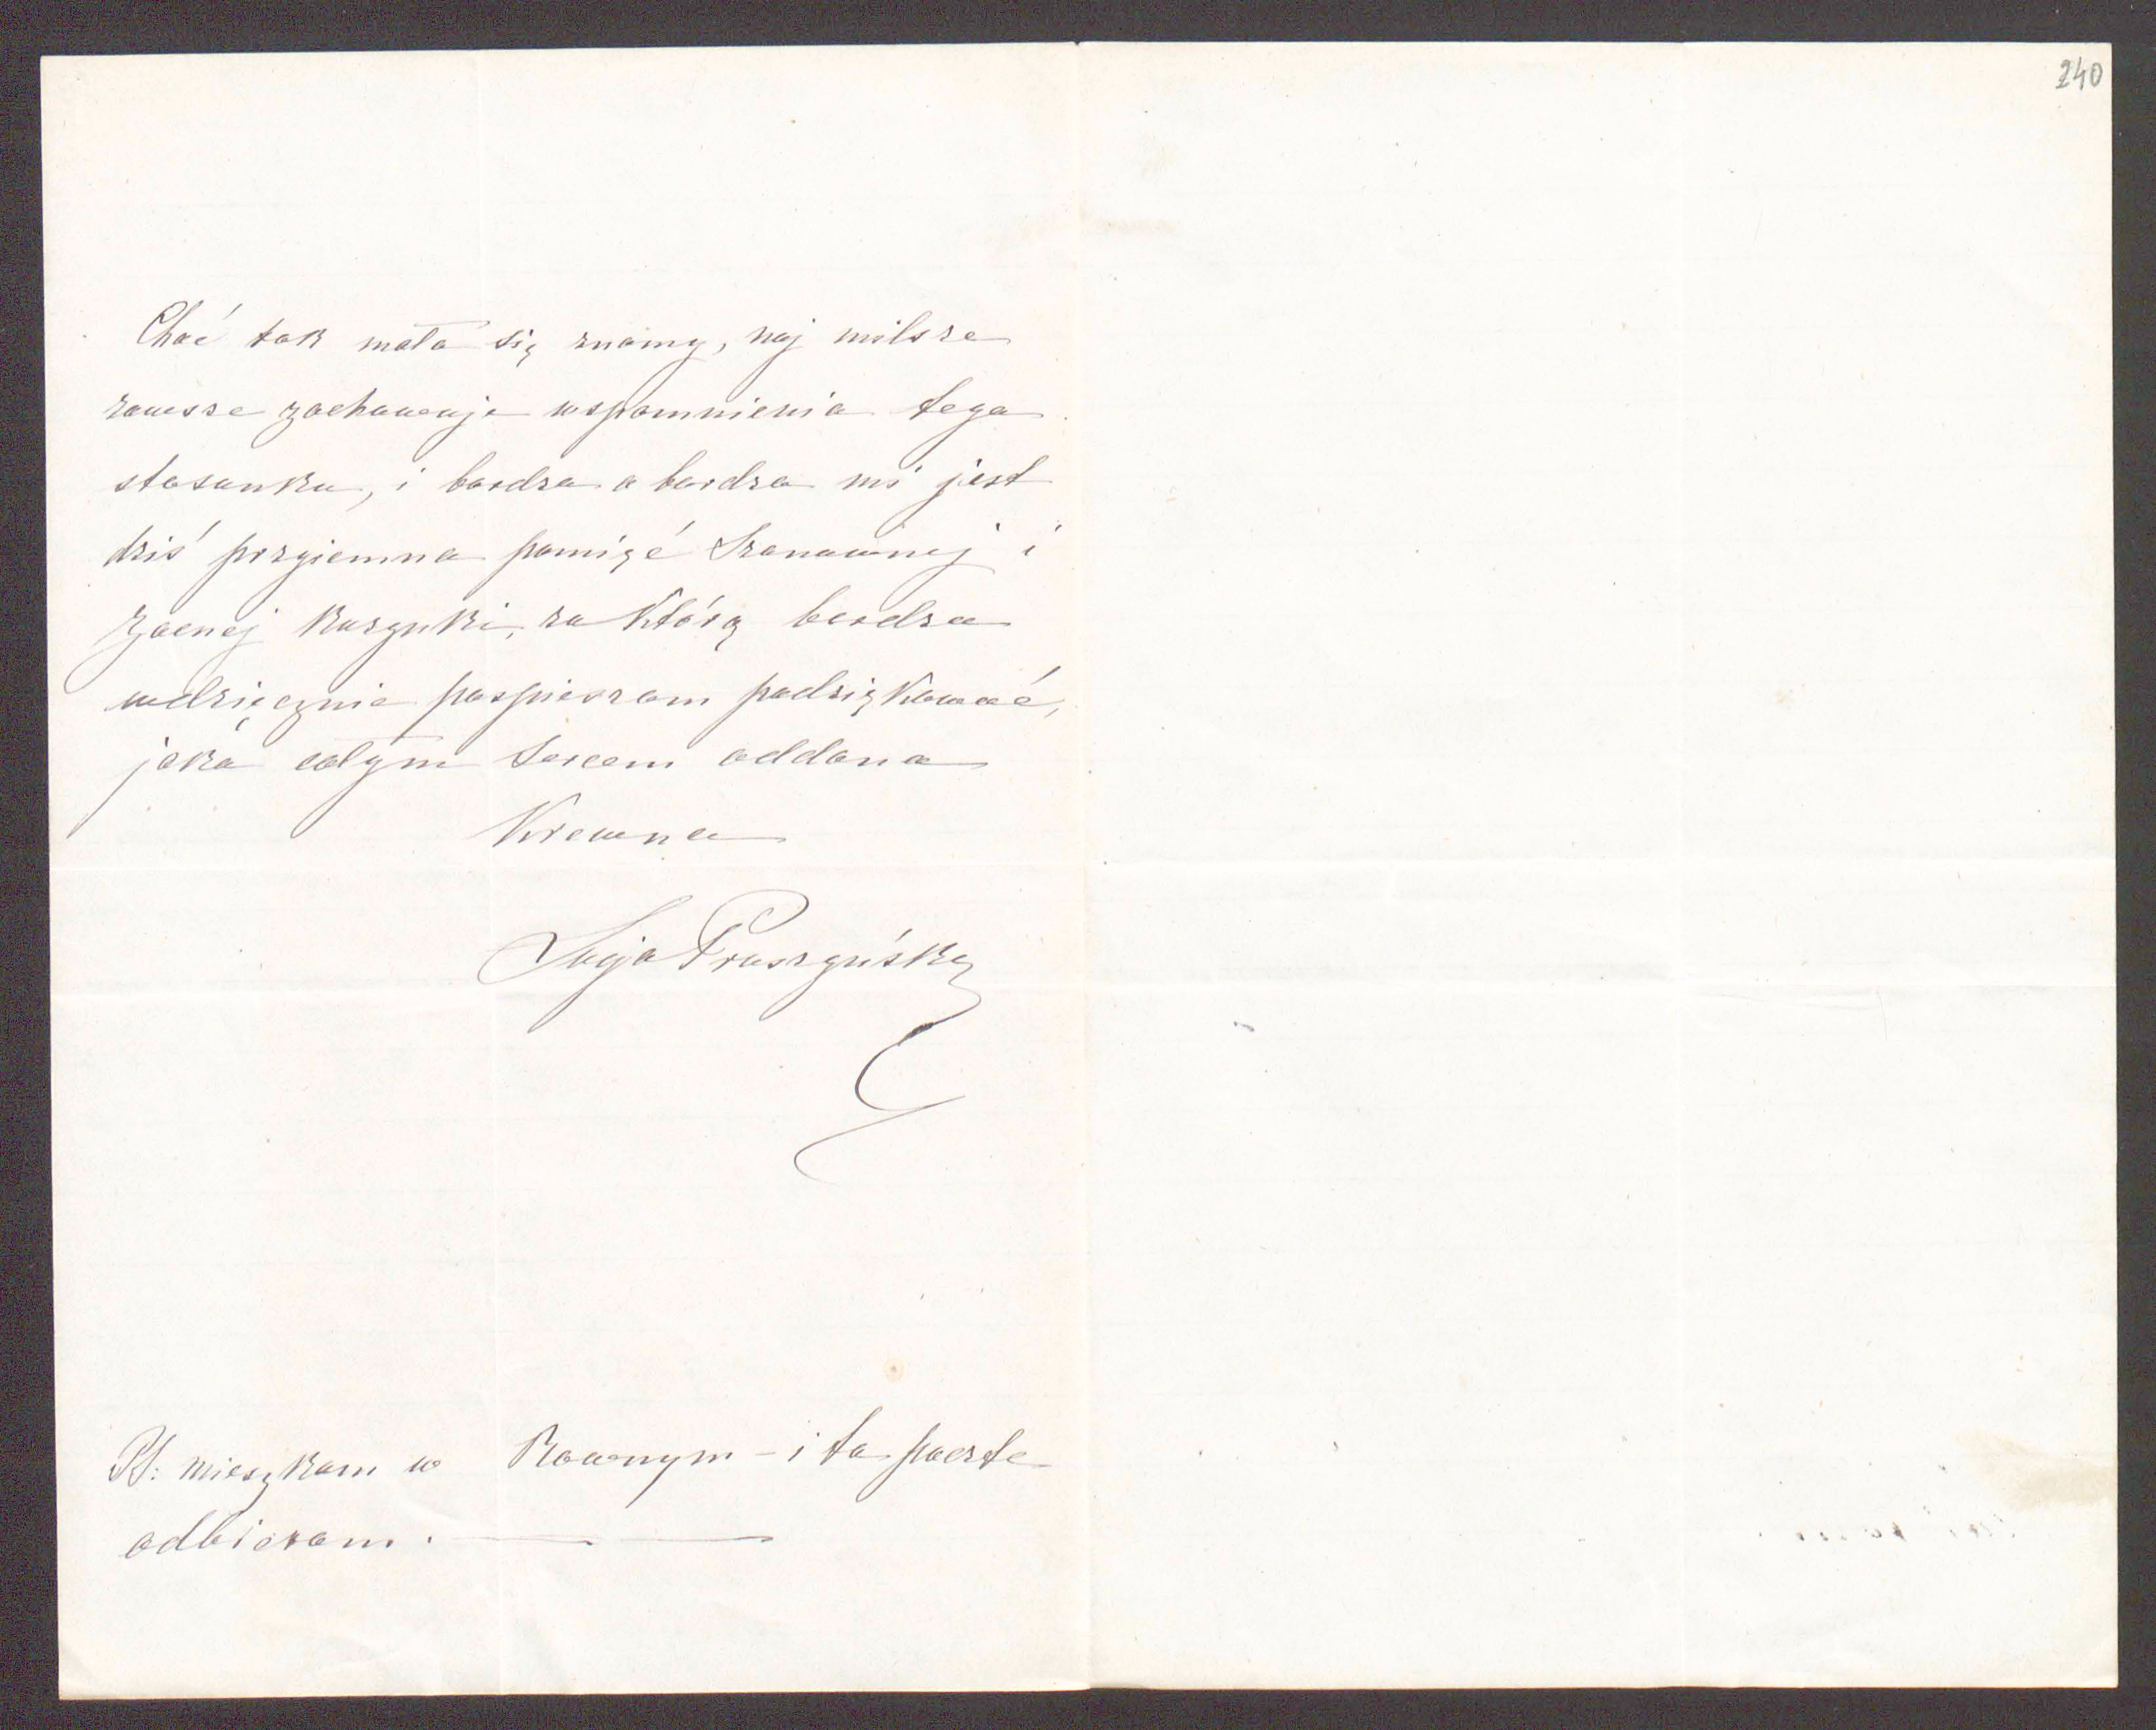 240
Choć tak mało się znamy, naj milsze
zawsze zachowuje wspomnienia tego
stosunku, i bardzo a bardzo mi jest
dziś przyiemna pamięć Szanownej i
Zacnej kuzynki, za którą bardzo
wdzięcznie pospieszam podziękować,
jako całym sercem oddana
Krewna
Pruszyńska
PS: mieszkam w Rownym - i tu poczte
odbieram.